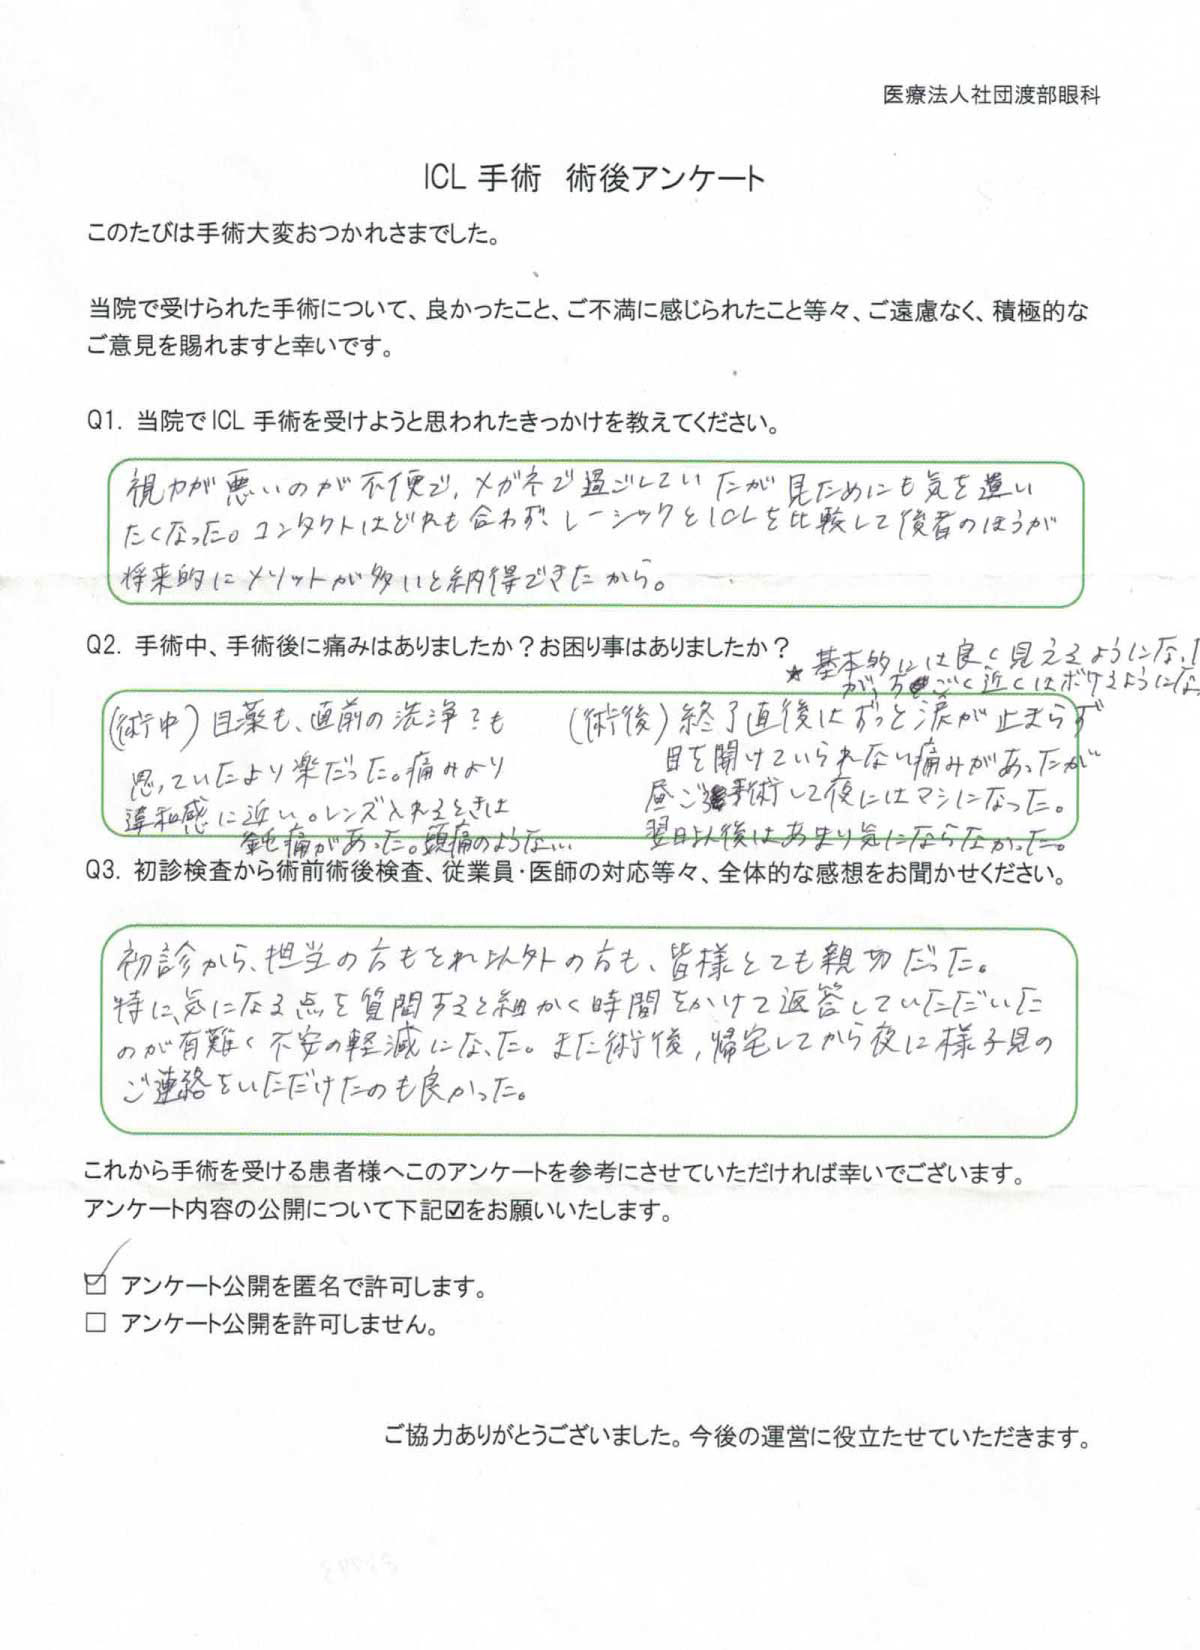 医療法人社団渡部眼科
ICL 手術　術後アンケート
このたびは手術大変おつかれさまでした。
当院で受けられた手術について、良かったこと、ご不満に感じられたこと等々、ご遠慮なく、積極的な
ご意見を賜れますと幸いです。
Q1. 当院でICL 手術を受けようと思われたきっかけを教えてください。
視力が悪いのが不便で、メガネで過ごしていたが見ためにも気を遣い
たくなった。コンタクトはどれも合わず、レーシックとICLを比較して後者のほうが
将来的にメリットが多いと納得できたから。
Q2. 手術中、手術後に痛みはありましたか？お困り事はありましたか？
★基本的には良く見えるようにな
ごく近くはボケるようにな
(術中) 目薬も、直前の洗浄？も
思っていたより楽だった。痛みより
違和感に近い。レンズ入れるときは
鈍痛があった。頭痛のような…
(術後) 終了直後はずっと涙が止まらず
目を開けていられない痛みがあったが
昼ご手術して夜にはマシになった。
翌日以後はあまり気にならなかった。
Q3. 初診検査から術前術後検査、従業員・医師の対応等々、全体的な感想をお聞かせください。
初診から、担当の方もそれ以外の方も、皆様とても親切だった。
特に、気になる点を質問すると細かく時間をかけて返答していただいた
のが有難く不安の軽減になった。また術後、帰宅してから夜に様子見の
ご連絡をいただけたのも良かった。
これから手術を受ける患者様へこのアンケートを参考にさせていただければ幸いでございます。
アンケート内容の公開について下記☑をお願いいたします。
☑ アンケート公開を匿名で許可します。
□ アンケート公開を許可しません。
ご協力ありがとうございました。今後の運営に役立たせていただきます。